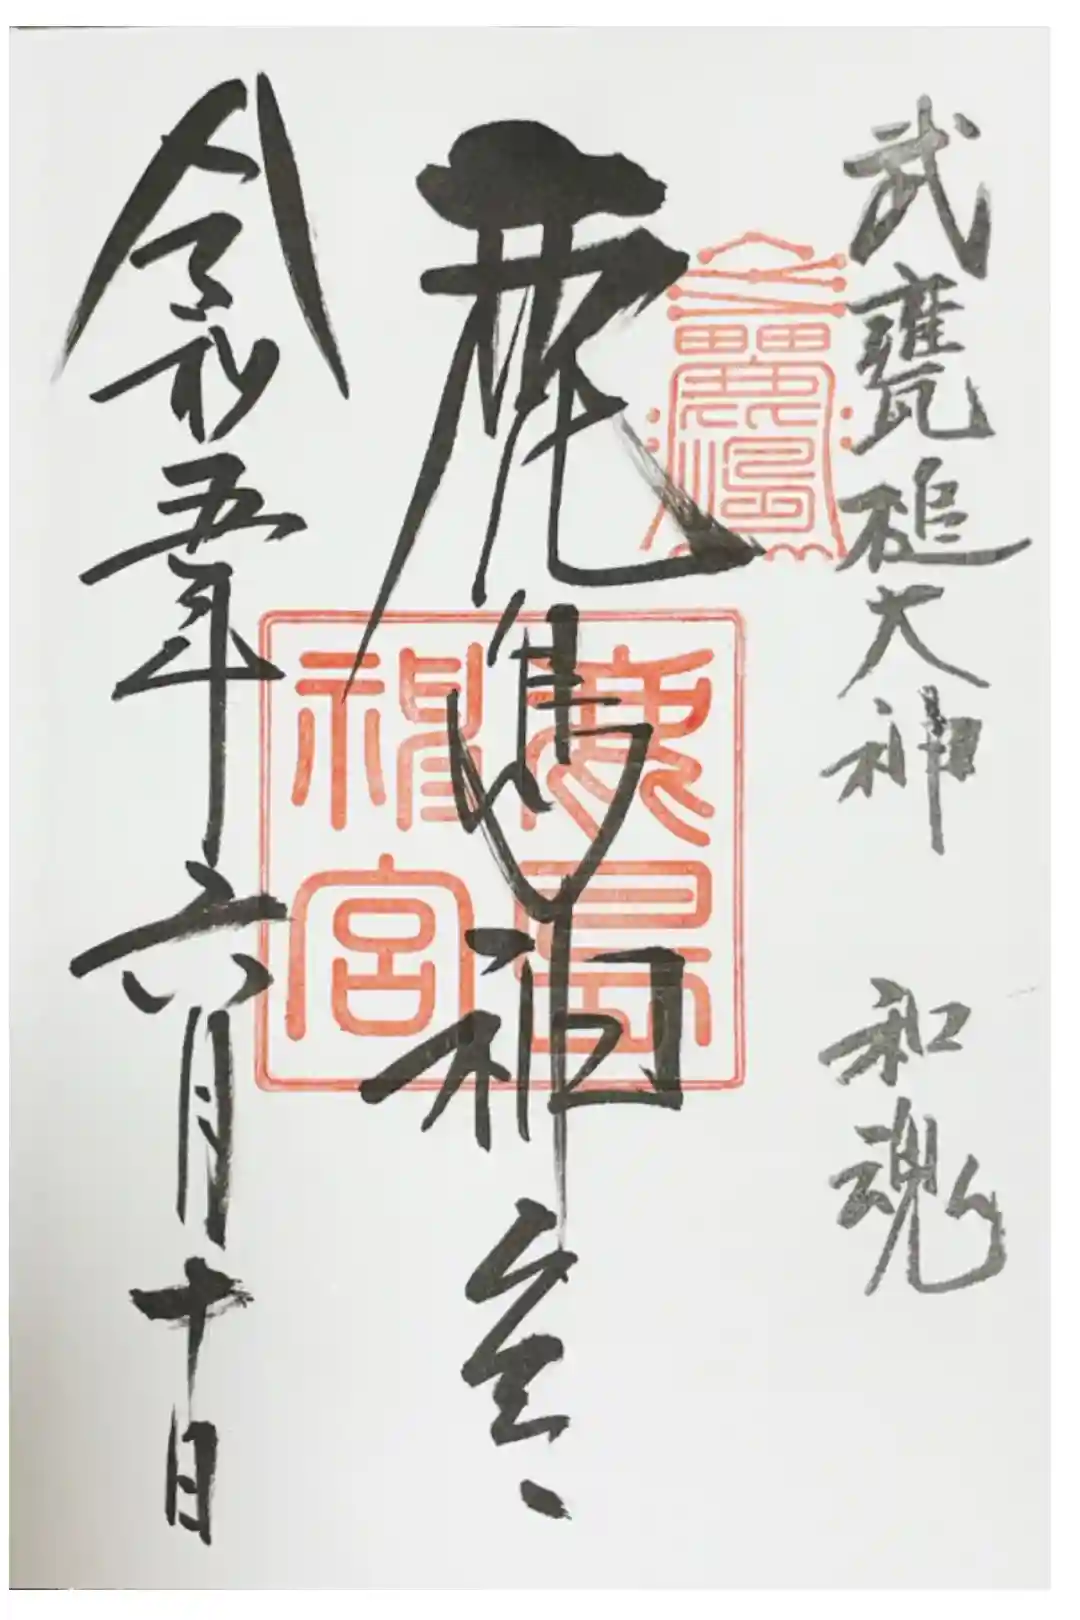 武甕槌大神 和魂
鹿嶋神宮
鹿島
神宮
令和五年六月十日